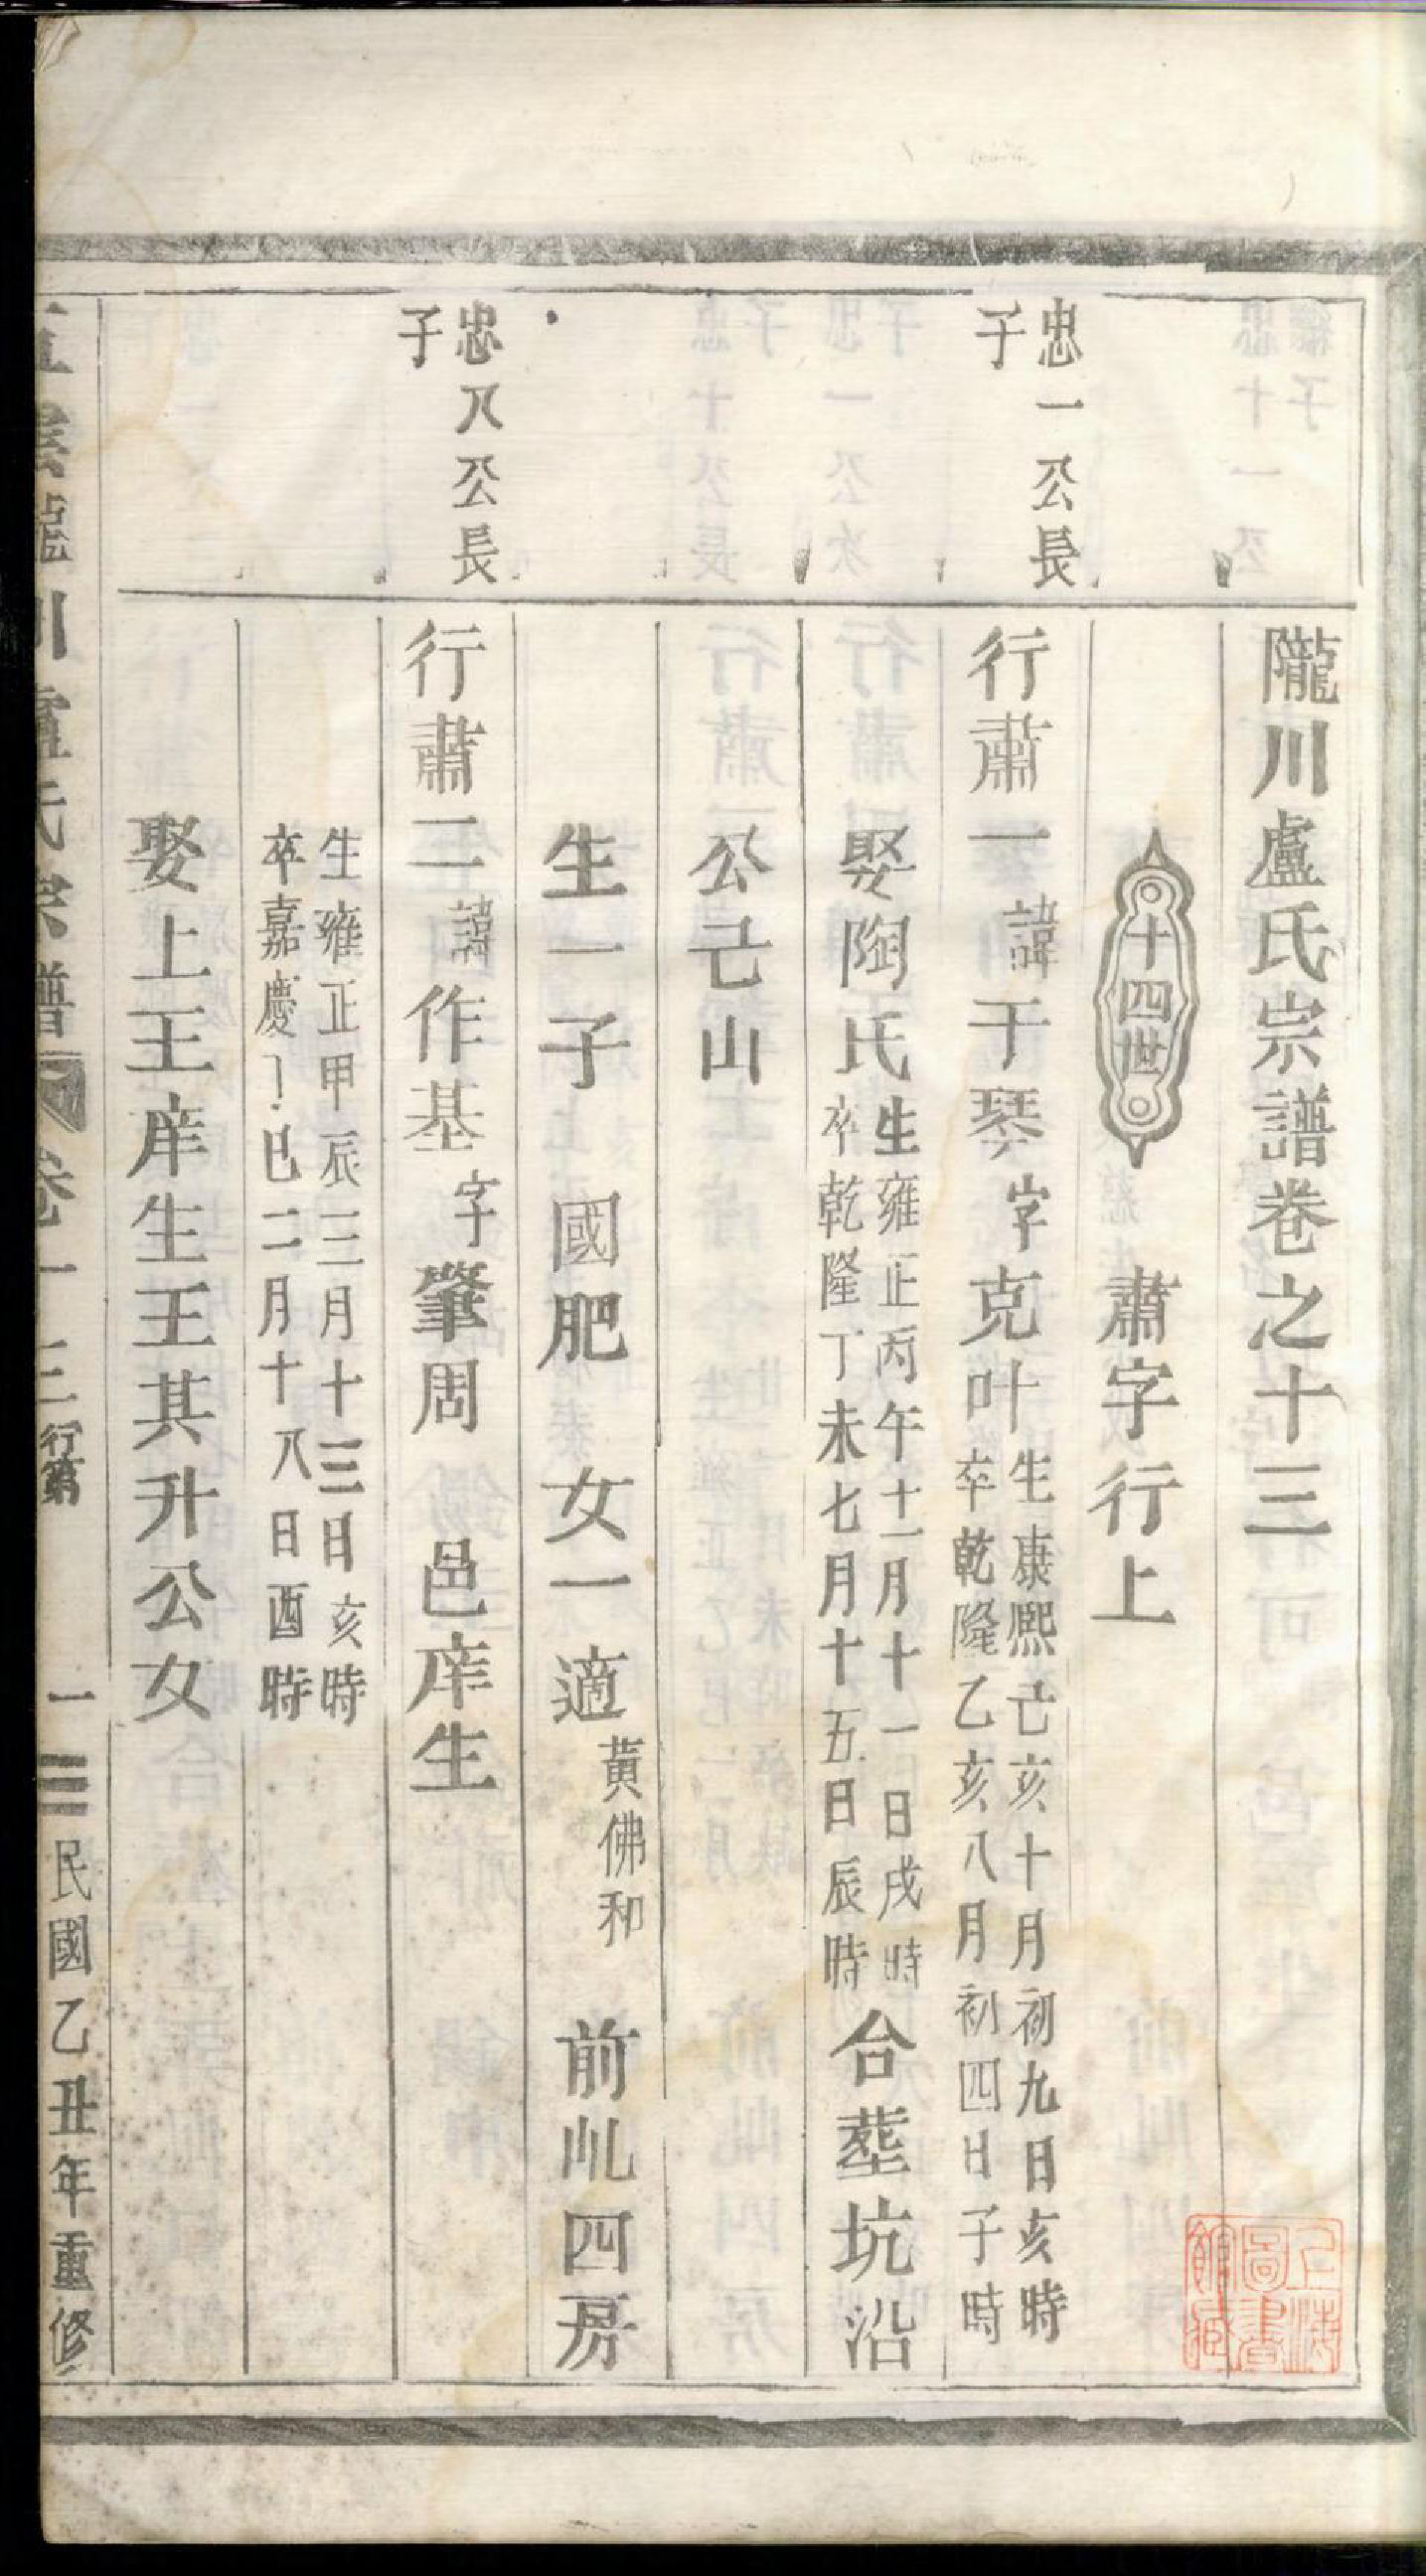 隴川盧氏宗譜卷之十三
十四世
肅字行上
忠一公長
子
行肅一諱于琴字克叶
生康熙己亥十月初九日亥時
卒乾隆乙亥八月初四日子時
娶陶氏
生雍正丙午十一月十一日戌時
卒乾隆丁未七月十五日辰時
合塟坑沿
公己山
生一子 國肥 女一適黃佛和 前乢四房
忠八公長
子
行肅二諱作基字肇周 邑庠生
生雍正甲辰三月十三日亥時
卒嘉慶 巳二月十八日酉時
娶上王庠生王其升公女
五雲隴川盧氏宗譜 卷十三 行第 一 民國乙丑年重修
上海圖書館藏